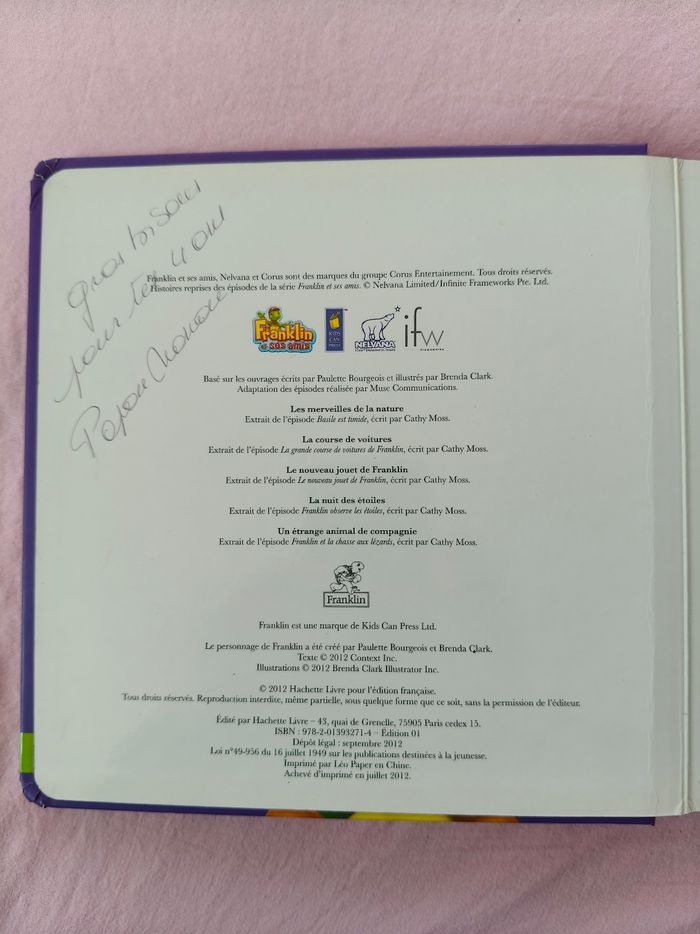 gros bisou
pour tes 4 ans
Franklin et ses amis, Nelvana et Corus sont des marques du groupe Corus Entertainement. Tous droits réservés.
Histoires reprises des épisodes de la série Franklin et ses amis. © Nelvana Limited/Infinite Frameworks Pte. Ltd.
Franklin
et ses amis
KIDS
CAN
PRESS
NELVANA
ifw
Basé sur les ouvrages écrits par Paulette Bourgeois et illustrés par Brenda Clark.
Adaptation des épisodes réalisée par Muse Communications.
Les merveilles de la nature
Extrait de l'épisode Basile est timide, écrit par Cathy Moss.
La course de voitures
Extrait de l'épisode La grande course de voitures de Franklin, écrit par Cathy Moss.
Le nouveau jouet de Franklin
Extrait de l'épisode Le nouveau jouet de Franklin, écrit par Cathy Moss.
La nuit des étoiles
Extrait de l'épisode Franklin observe les étoiles, écrit par Cathy Moss.
Un étrange animal de compagnie
Extrait de l'épisode Franklin et la chasse aux lézards, écrit par Cathy Moss.
Franklin
Franklin est une marque de Kids Can Press Ltd.
Le personnage de Franklin a été créé par Paulette Bourgeois et Brenda Clark.
Texte © 2012 Context Inc.
Illustrations © 2012 Brenda Clark Illustrator Inc.
© 2012 Hachette Livre pour l'édition française.
Tous droits réservés. Reproduction interdite, même partielle, sous quelque forme que ce soit, sans la permission de l'éditeur.
Édité par Hachette Livre – 43, quai de Grenelle, 75905 Paris cedex 15.
ISBN : 978-2-01393271-4 – Édition 01
Dépôt légal : septembre 2012
Loi n°49-956 du 16 juillet 1949 sur les publications destinées à la jeunesse.
Imprimé par Léo Paper en Chine.
Achevé d'imprimé en juillet 2012.